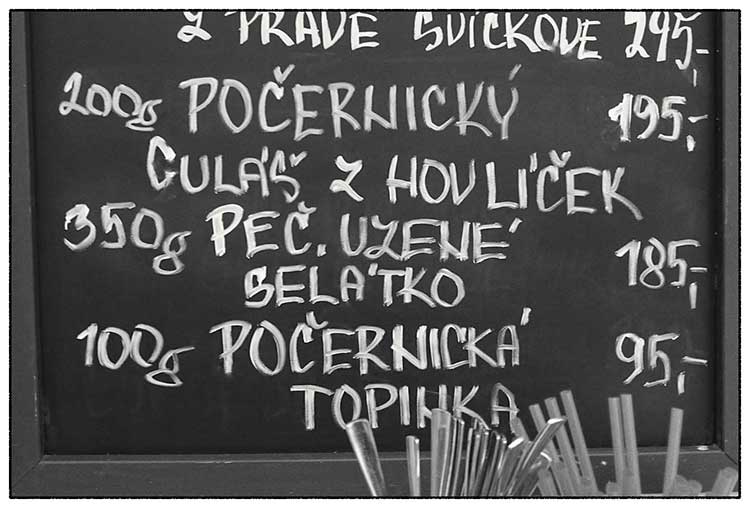 Z PRAVÉ SVÍČKOVÉ 245,-
200g POČERNICKÝ 195,-
GULÁŠ Z HOV LÍČEK
350g PEČ. UZENÉ
SELÁTKO 185,-
100g POČERNICKÁ 95,-
TOPINKA